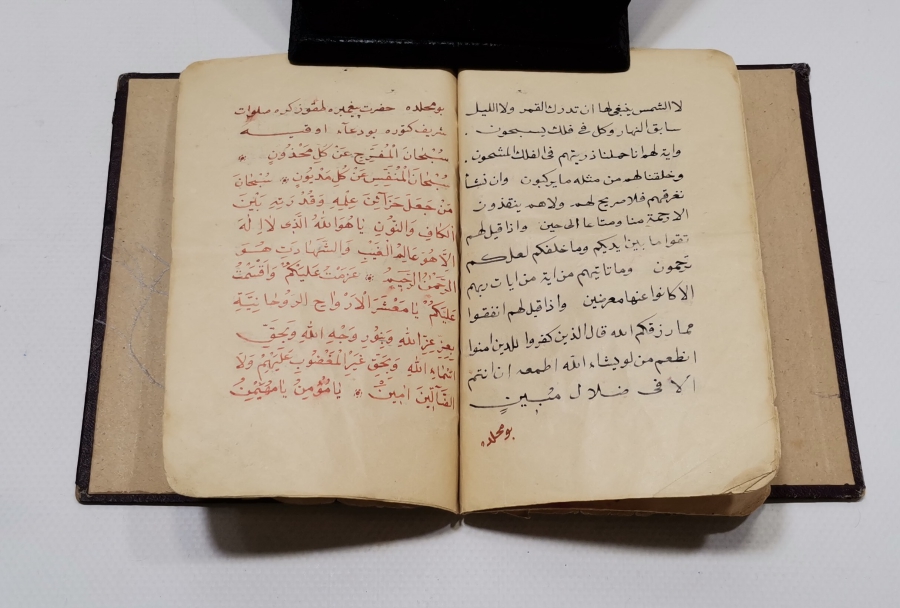 لا الشمس ينبغى لها ان تدرك القمر ولا الليل
سابق النهار وكل فى فلك يسبحون
واية لهم انا حملنا ذريتهم فى الفلك المشحون
وخلقنا لهم من مثله ما يركبون وان نشأ
نغرقهم فلا صريخ لهم ولا هم ينقذون
الا رحمة منا ومتاعا الى حين واذا قيل لهم
تقوا ما بين ايديكم وما خلفكم لعلكم
ترحمون وما تاتيهم من اية من ايات ربهم
الا كانوا عنها معرضين واذا قيل لهم انفقوا
مما رزقكم الله قال الذين كفروا للذين امنوا
انطعم من لو يشاء الله اطعمه ان انتم
الا فى ضلال مُبينٍ
بو محلده
بو محلده حضرت پيغمبره صلوات
شريف بو دعاء اوقيه
سُبْحَانَ الْمُفَرِّجِ عَنْ كُلِّ مَحْذُونٍ
سُبْحَانَ الْمُنَفِّسِ عَنْ كُلِّ مَدْيُونٍ سُبْحَانَ
مَنْ جَعَلَ خَزَآئِنَ عِلْمِهِ وَقُدْرَتِهِ بَيْنَ
الْكَافِ وَالنُّونِ يَا هُوَ اللهُ الَّذِى لَا اِلٰهَ
اِلَّا هُوَ عَالِمُ الْغَيْبِ وَالشَّهَادَتِ هُوَ
الرَّحْمٰنُ الرَّحِيمُ عَزَمْتُ عَلَيْكُمْ وَاَقْسَمْتُ
عَلَيْكُمْ يَا مَعْشَرَ الْاَرْوَاحِ الرُّوحَانِيَّةِ
بِعِزِّ عِزِّ اللهِ وَبِنُورِ وَجْهِ اللهِ وَبِحَقِّ
اللهِ وَبِحَقِّ غَيْرِ الْمَغْضُوبِ عَلَيْهِمْ وَلَا
الضَّآلِّينَ اٰمِينَ يَا مُؤْمِنُ يَا مُهَيْمِنُ